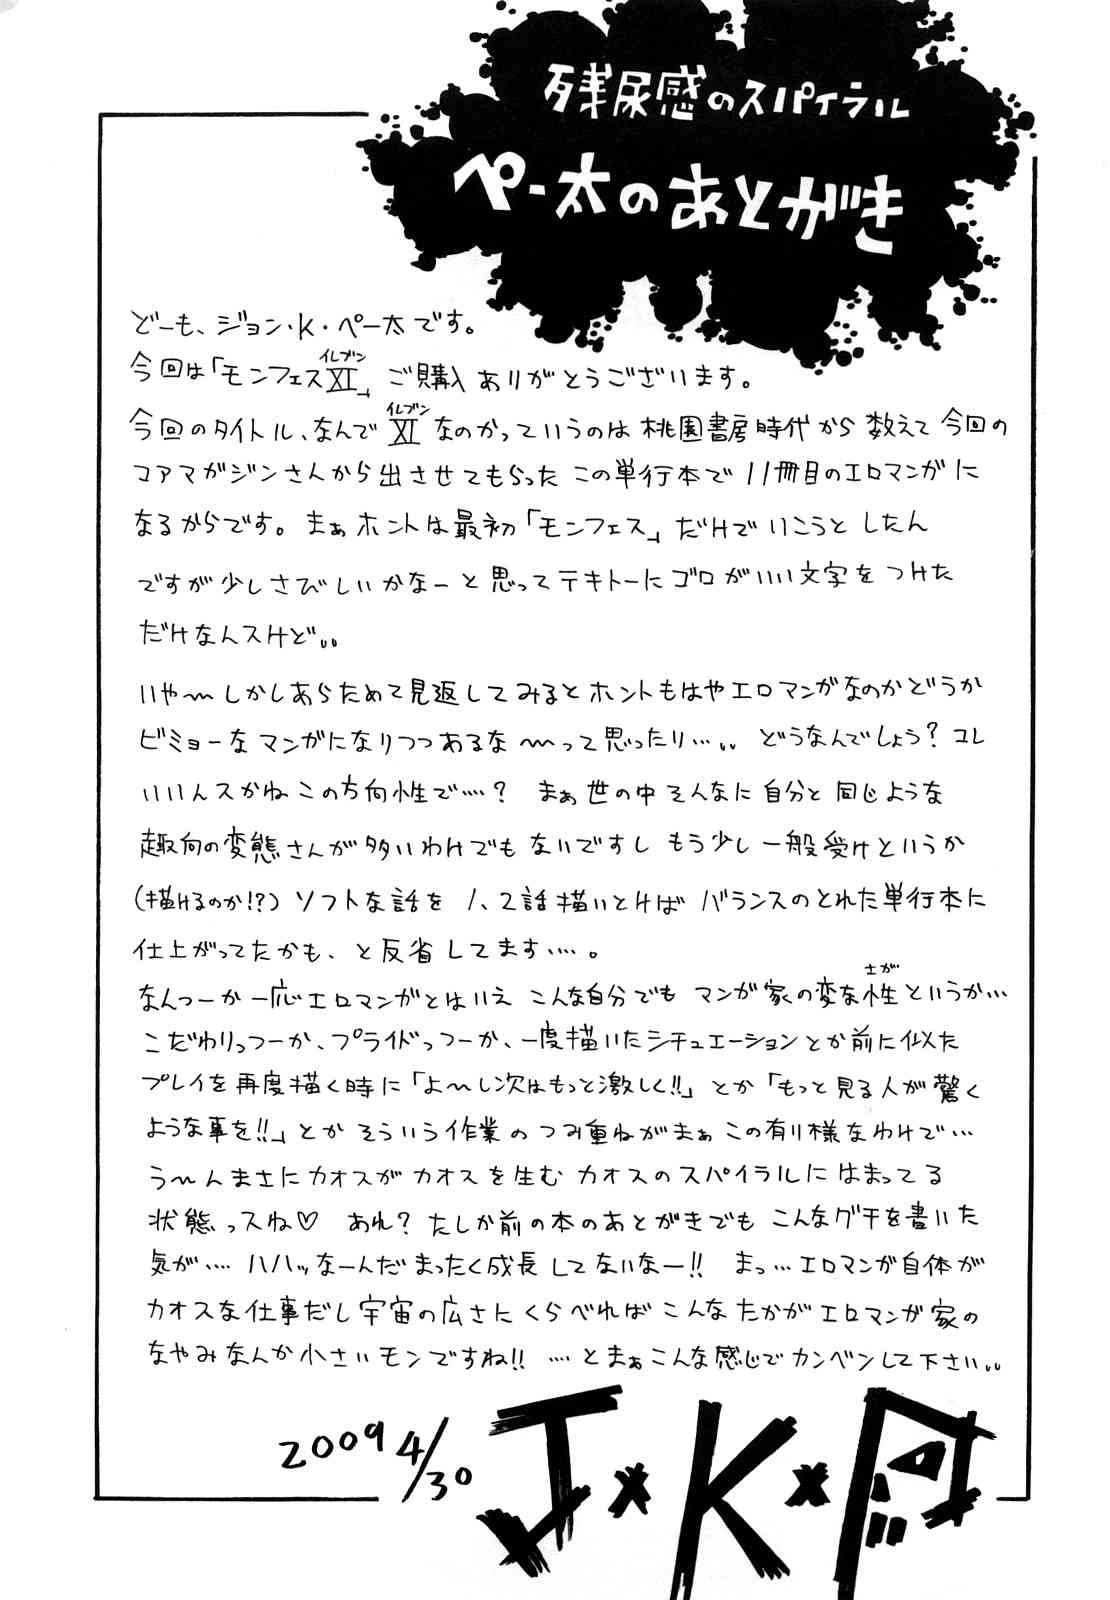 残尿感のスパイラル
ぺー太のあとがき
どーも、ジョン・K・ぺー太です。
今回は「モンフェスXI」ご購入ありがとうございます。
イレブン
今回のタイトル、なんでXIなのかっていうのは桃園書房時代から数えて今回の
イレブン
コアマガジンさんから出させてもらったこの単行本で11冊目のエロマンガに
なるからです。まぁホントは最初「モンフェス」だけでいこうとしたん
ですが少しさびしいかなーと思ってテキトーにゴロがいい文字をつけた
だけなんスけど。。
いや〜しかしあらためて見返してみるとホントもはやエロマンガなのかどうか
ビミョーなマンガになりつつあるな〜って思ったり…。。どうなんでしょう?コレ
いいんスかねこの方向性で…?まぁ世の中そんなに自分と同じような
趣向の変態さんが多いわけでもないですしもう少し一般受けというか
(描けるのか!?)ソフトな話を1、2話描いとけばバランスのとれた単行本に
仕上がってたかも、と反省してます…。
なんつーか一応エロマンガとはいえこんな自分でもマンガ家の変な性というか…
さが
こだわりっつーか、プライドっつーか、一度描いたシチュエーションとか前に似た
プレイを再度描く時に「よ〜し次はもっと激しく!!」とか「もっと見る人が驚く
ような事を!!」とかそういう作業のつみ重ねがまぁこの有り様なわけで…
う〜んまさにカオスがカオスを生むカオスのスパイラルにはまってる
状態っスね♡ あれ?たしか前の本のあとがきでもこんなグチを書いた
気が…ハハッなーんだまったく成長してないなー!! まっ…エロマンガ自体が
カオスな仕事だし宇宙の広さにくらべればこんなたかがエロマンガ家の
なやみなんか小さいモンですね!! …とまぁこんな感じでカンベンして下さい。。
2009 4/30
J×K×P